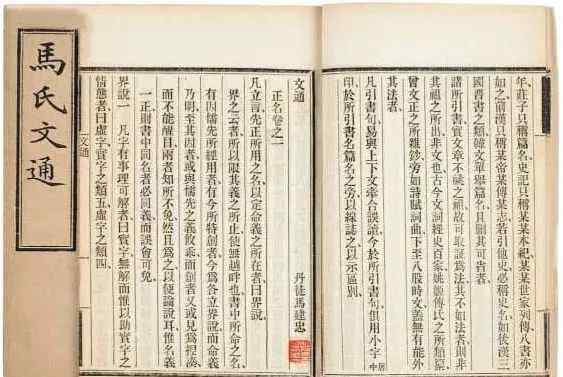 馬氏文通
年莊子只稱篇名史記只稱某某本紀某某世家列傳八書亦
如之前漢只稱某帝某傳某志若引他史必稱史名如後漢三
國晉書之類韓文單舉篇名且刪其可省者
諸所引書實文章不祧之祖故可取證爲法其不如法者則非
其祖之所出非文也古今文詞經史百家姚姬傳氏之所類纂
曾文正之所雜鈔旁如詩賦詞曲下至八股時文蓋無有能外
其法者
凡引書句易與上下文牽合誤讀今於所引書句俱用小字居中
印於所引書名篇名之旁以線誌之以示區別
文通
正名卷之一
丹徒馬建忠
凡立言先正所用之名以定命義之所在者曰界說
界之云者所以限其義之所止使無越畔也書中所命之名
有因儒先所經用者有今所特創者今爲各立界說而命義
乃明至其因者或與儒先之義攸乖而創者又或見爲捏湊
而不能醒目兩者知所不免然且爲之以便論說耳惟名義
一正則書中同名者必同義而誤會可免
界說一 凡字有事理可解者曰實字無解而惟以助實字之
情態者曰虛字實字之類五虛字之類四
文通